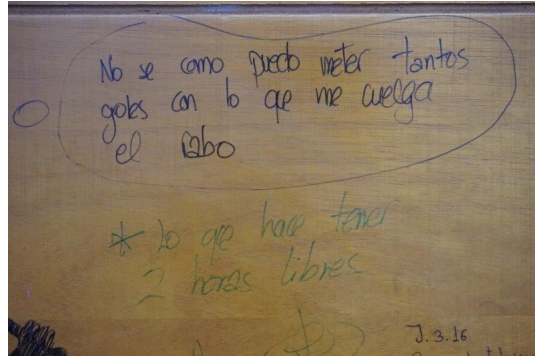 No se como puedo meter tantos
goles con lo que me cuelga
el rabo
* Lo que hace tener
2 horas libres
J.3.16